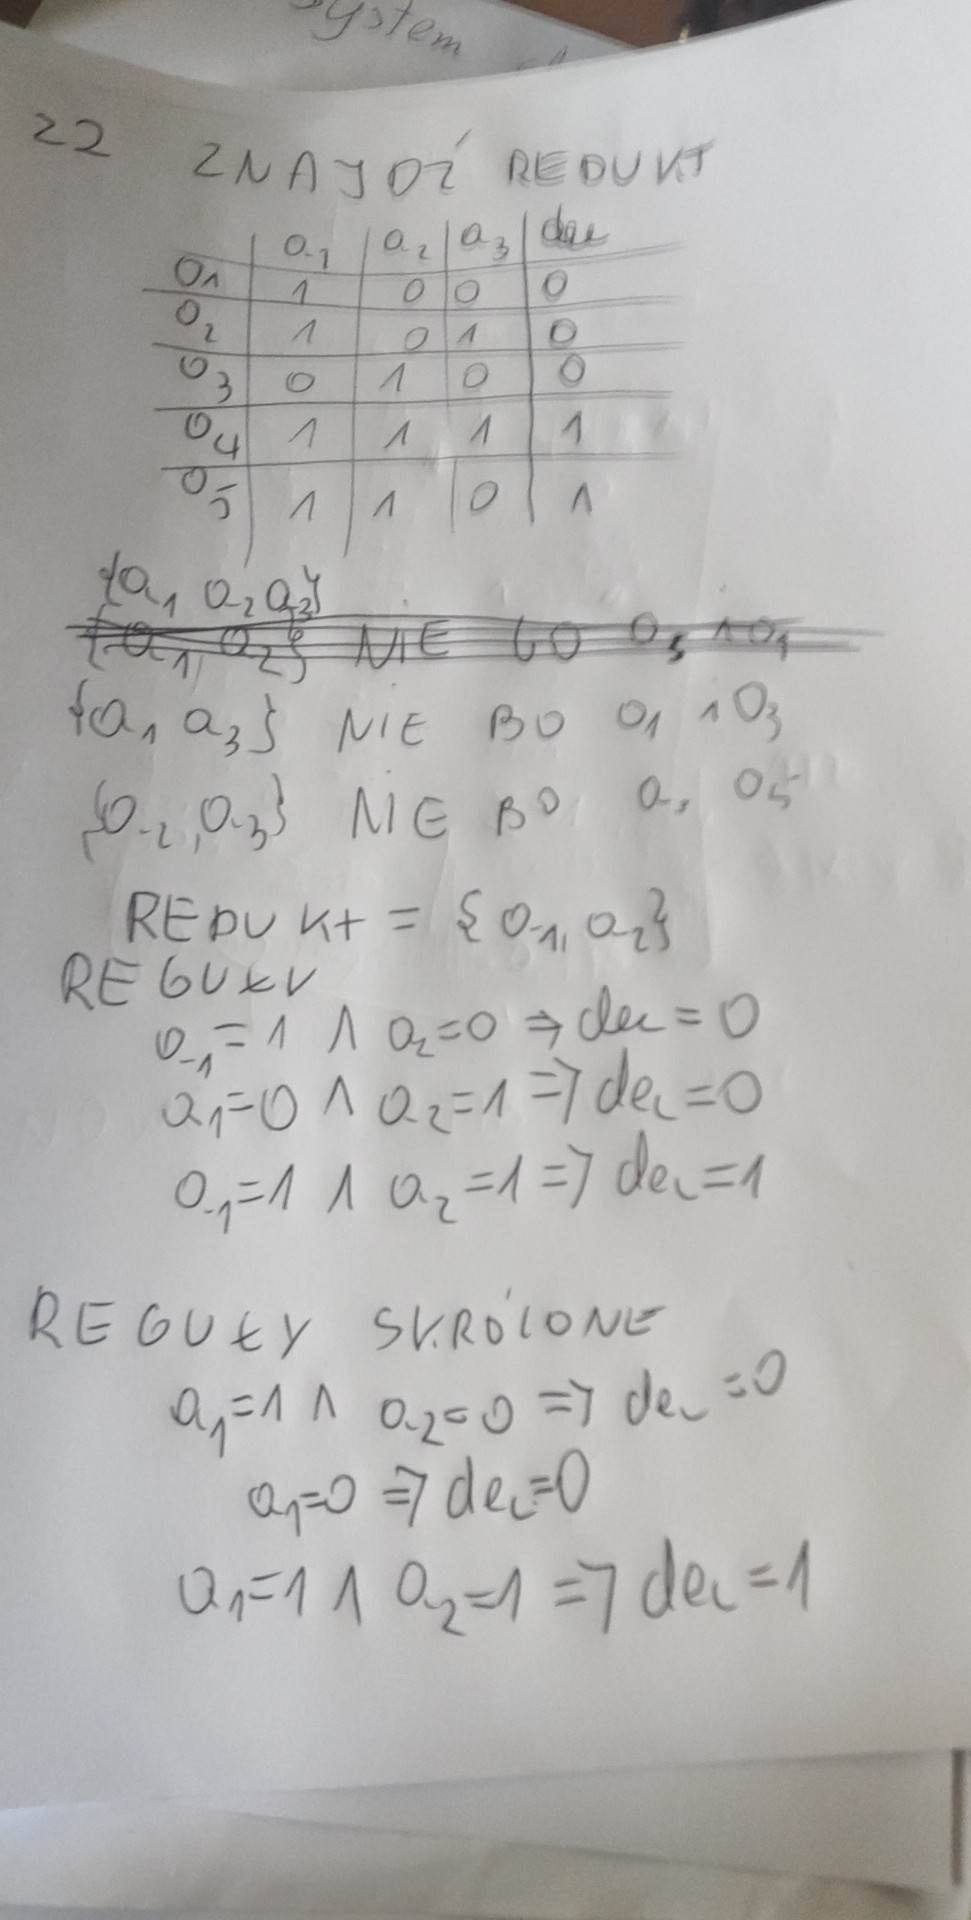 system
22 ZNAJDŹ REDUKT
a1 a2 a3 dec
O1 1 0 0 0
O2 1 0 1 0
O3 0 1 0 0
O4 1 1 1 1
O5 1 1 0 1
{a1 a2 a3}
{a1, a2} NIE BO O5 i O1
{a1 a3} NIE BO O1 i O3
{a2, a3} NIE BO O5
REDUKT = {a1, a2}
REGUŁY
a1=1 ∧ a2=0 => dec=0
a1=0 ∧ a2=1 => dec=0
a1=1 ∧ a2=1 => dec=1
REGUŁY SKRÓCONE
a1=1 ∧ a2=0 => dec=0
a1=0 => dec=0
a1=1 ∧ a2=1 => dec=1